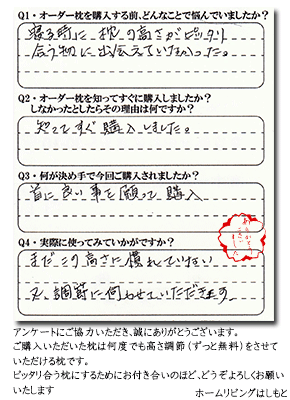 Q1・オーダー枕を購入する前、どんなことで悩んでいましたか?
寝る時に 枕の高さがピッタリ
合う物に出会えていなかった。
Q2・オーダー枕を知ってすぐに購入しましたか?
しなかったとしたらその理由は何ですか?
知ってすぐ購入しました。
Q3・何が決め手で今回ご購入されましたか?
首に良い事を願って購入
Q4・実際に使ってみていかがですか?
まだこの高さに慣れていない
又、調節に伺わせていただきます
アンケートにご協力いただき、誠にありがとうございます。
ご購入いただいた枕は何度でも高さ調節(ずっと無料)をさせて
いただける枕です。
ピッタリ合う枕にするためにお付き合いのほど、どうぞよろしくお願い
いたします
ホームリビングはしもと